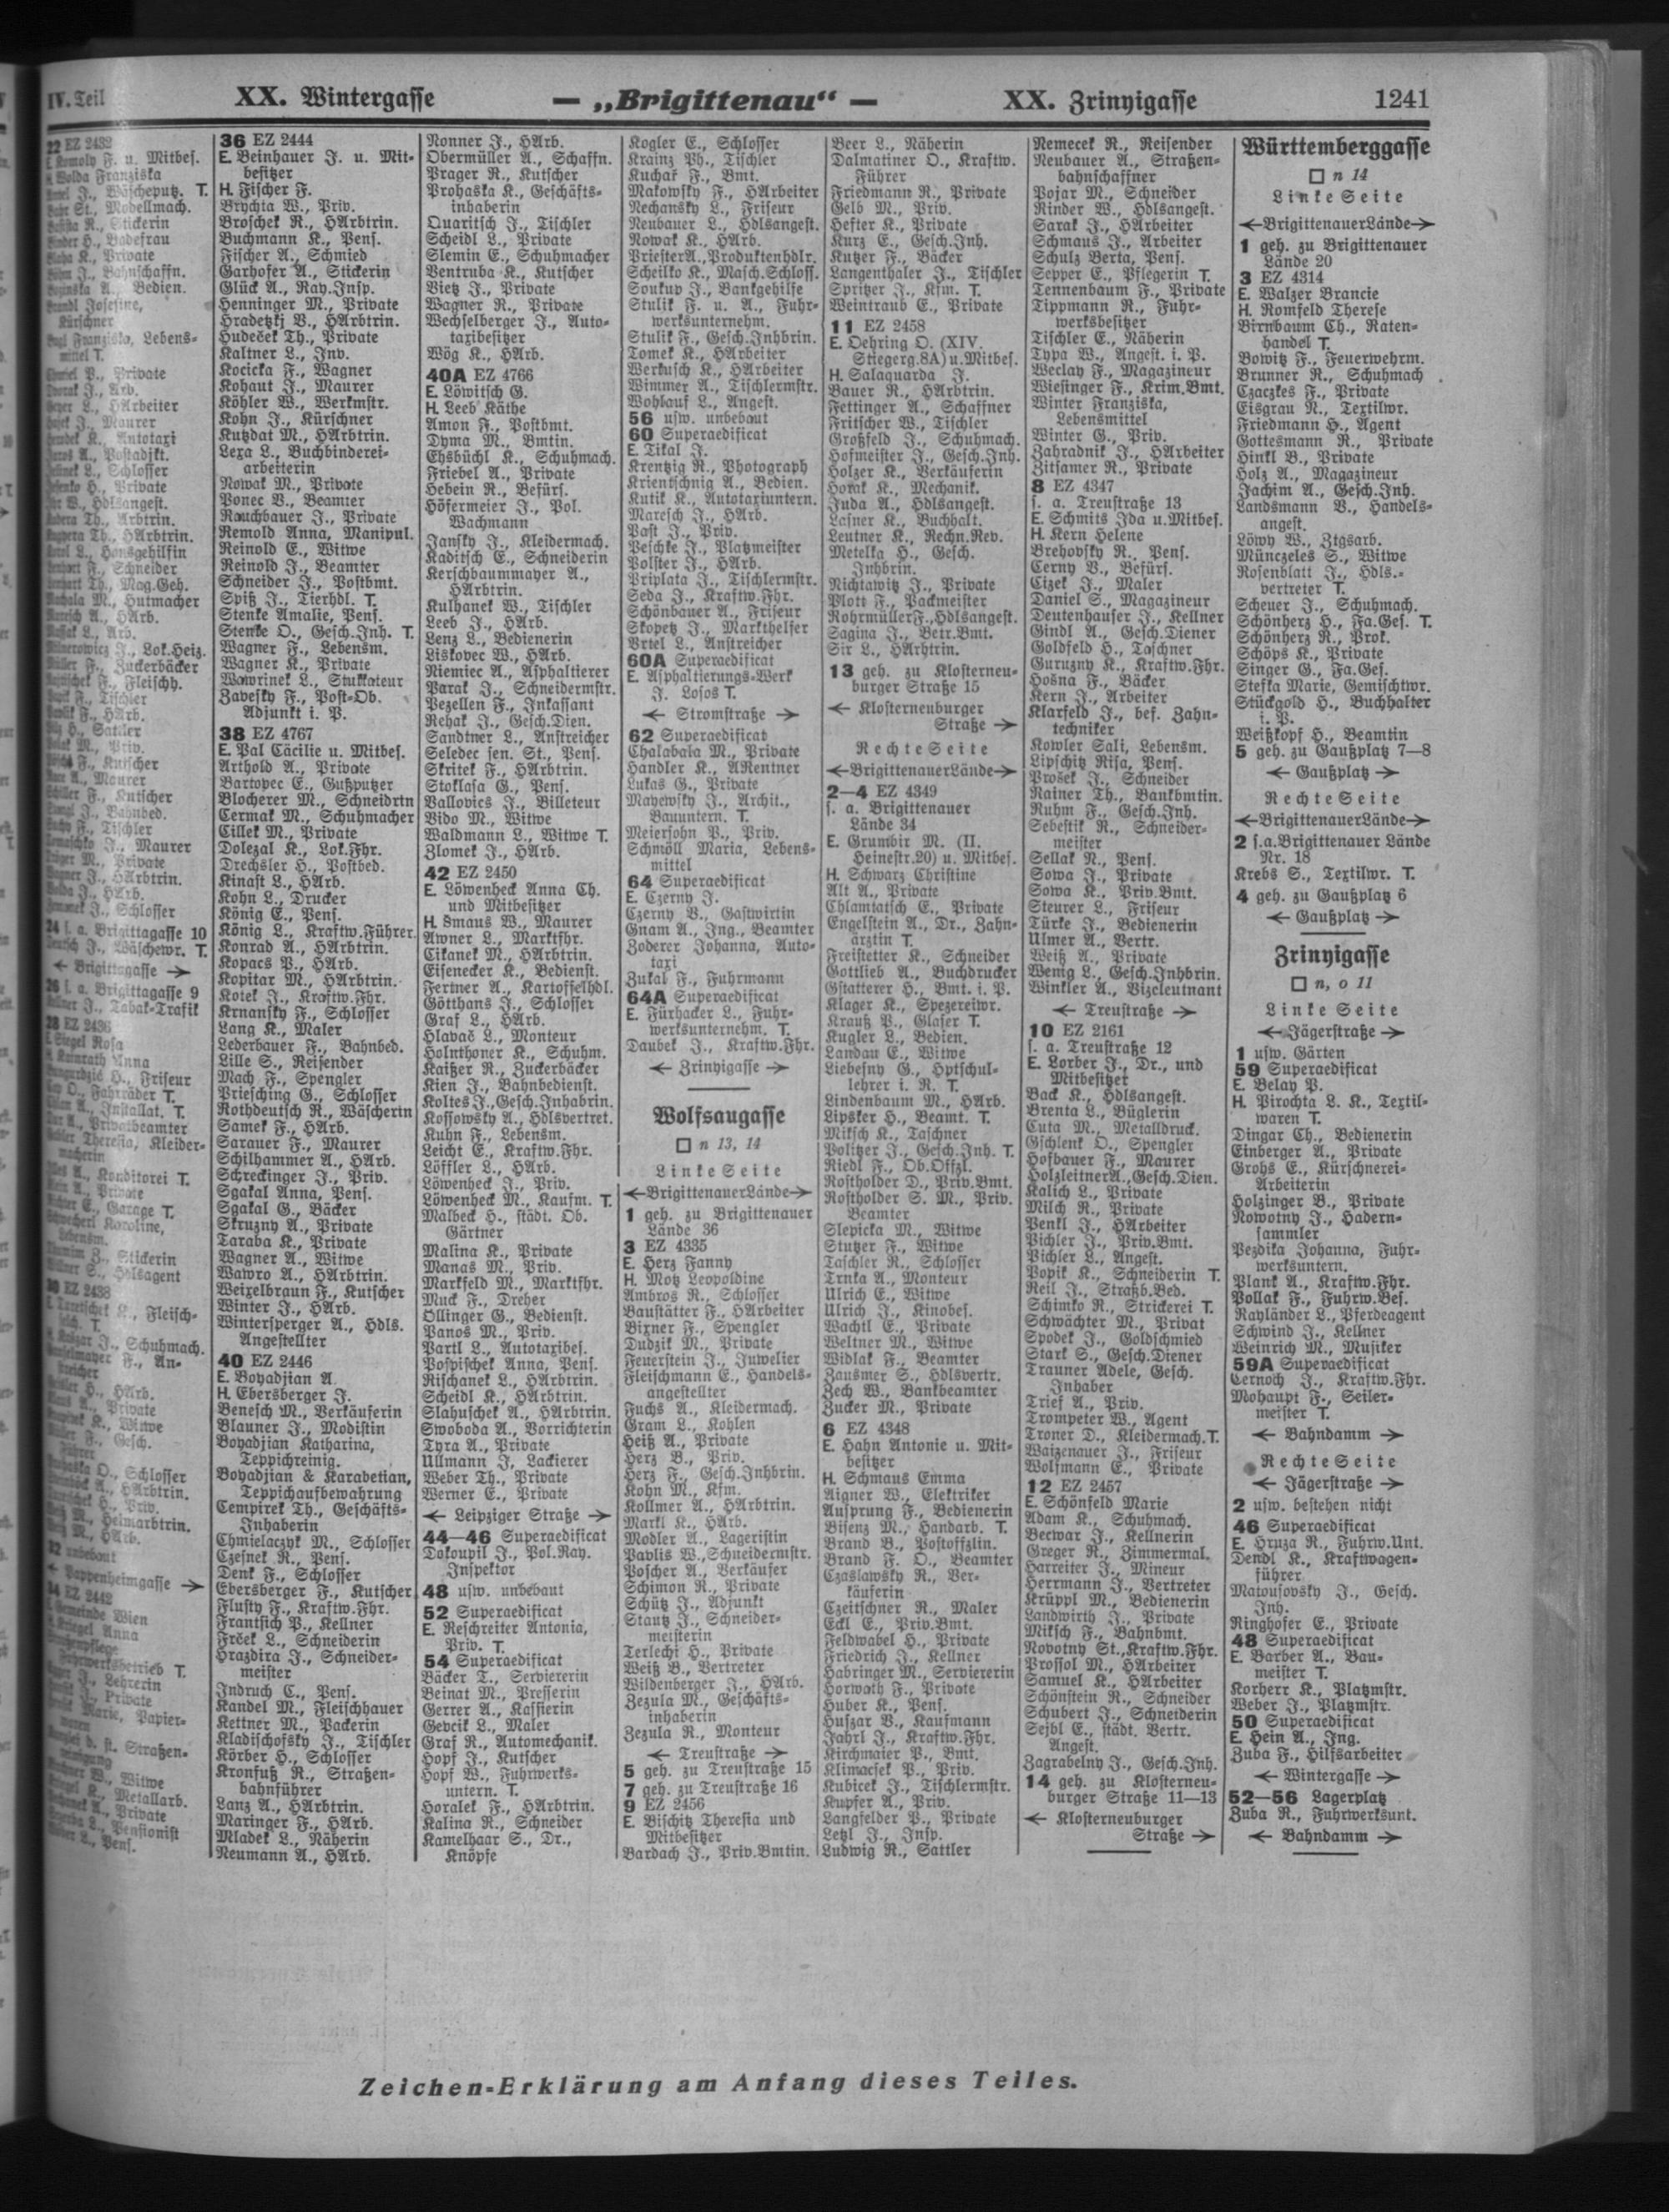 IV. Teil
XX. Wintergasse
— „Brigittenau“ —
XX. Zrinyigasse
1241
22 EZ 2432
Komoly F. u. Mitbes.
Wolda Franziska
J., Wäscheputz. T.
St., Modellmach.
R., Stickerin
H., Badefrau
K., Private
J., Bahnschaffn.
A., Bedien.
Josefine,
Kürschner
Franziska, Lebens-
mittel T.
P., Private
J., Arb.
L., HArbeiter
J., Maurer
K., Autotaxi
A., Postadjkt.
L., Schlosser
H., Private
W., Hdlsangest.
Th., Arbtrin.
Th., HArbtrin.
L., Hausgehilfin
F., Schneider
Th., Mag.Geh.
M., Hutmacher
A., HArb.
L., Arb.
J., Lok.Heiz.
Müller F., Zuckerbäcker
F., Fleischh.
F., Tischler
F., HArb.
H., Sattler
M., Priv.
F., Kutscher
A., Maurer
Schiller F., Kutscher
J., Bahnbed.
F., Tischler
J., Maurer
M., Private
Wagner J., HArbtrin.
Wolda J., HArb.
J., Schlosser
24 s. a. Brigittagasse 10
J., Wäschewr. T.
← Brigittagasse →
26 s. a. Brigittagasse 9
J., Tabak-Trafik
28 EZ 2436
E. Siegel Rosa
H. Kainrath Anna
H., Friseur
O., Fahrräder T.
A., Installat. T.
A., Privatbeamter
Theresia, Kleider-
macherin
A., Konditorei T.
A., Private
E., Garage T.
Karoline,
Lebensm.
Z., Stickerin
S., Hdlsagent
30 EZ 2438
K., Fleisch-
J., Schuhmach.
F., An-
streicher
H., HArb.
A., Private
K., Witwe
F., Gesch.
Führer
O., Schlosser
A., HArbtrin.
H., Priv.
M., Heimarbtrin.
M., HArb.
32 unbebaut
← Pappenheimgasse →
34 EZ 2442
E. Gemeinde Wien
Kriegel Anna
Fuhrwerksbetrieb T.
J., Lehrerin
J., Private
Marie, Papier-
waren
d. st. Straßen-
reinigung
W., Witwe
K., Metallarb.
A., Private
L., Pensionist
L., Pens.
36 EZ 2444
E. Beinhauer J. u. Mit-
besitzer
H. Fischer F.
Brychta W., Priv.
Broschek R., HArbtrin.
Buchmann K., Pens.
Fischer A., Schmied
Garhofer A., Stickerin
Glück A., Ray.Insp.
Henninger M., Private
Hradetzkj V., HArbtrin.
Hudeček Th., Private
Kaltner L., Inv.
Kocicka F., Wagner
Kohaut J., Maurer
Köhler W., Werkmstr.
Kohn J., Kürschner
Kutzdat M., HArbtrin.
Lexa L., Buchbinderei-
arbeiterin
Nowak M., Private
Ponec V., Beamter
Rauchbauer J., Private
Remold Anna, Manipul.
Reinold E., Witwe
Reinold J., Beamter
Schneider J., Postbmt.
Spitz J., Tierhdl. T.
Stenke Amalie, Pens.
Stenke O., Gesch.Inh. T.
Wagner F., Lebensm.
Wagner K., Private
Wawrinek L., Stukkateur
Zavesky F., Post-Ob.
Adjunkt i. P.
38 EZ 4767
E. Pal Cäcilie u. Mitbes.
Arthold A., Private
Bartovec E., Gußputzer
Blocherer M., Schneidrtn
Cermak M., Schuhmacher
Cillek M., Private
Dolezal K., Lok.Fhr.
Drechsler H., Postbed.
Kinast L., HArb.
Kohn L., Drucker
König E., Pens.
König L., Kraftw.Führer
Konrad A., HArbtrin.
Kopacs P., HArb.
Kopitar M., HArbtrin.
Kotek J., Kraftw.Fhr.
Krnansky F., Schlosser
Lang K., Maler
Lederbauer F., Bahnbed.
Lille S., Reisender
Mach F., Spengler
Priesching G., Schlosser
Rothdeutsch R., Wäscherin
Samek F., HArb.
Sarauer F., Maurer
Schilhammer A., HArb.
Schreckinger J., Priv.
Sgakal Anna, Pens.
Sgakal G., Bäcker
Skruzny A., Private
Taraba K., Private
Wagner A., Witwe
Wawro A., HArbtrin.
Weixelbraun F., Kutscher
Winter J., HArb.
Wintersperger A., Hdls.
Angestellter
40 EZ 2446
E. Boyadjian A.
H. Ebersberger J.
Benesch M., Verkäuferin
Blauner J., Modistin
Boyadjian Katharina,
Teppichreinig.
Boyadjian & Karabetian,
Teppichaufbewahrung
Cempirek Th., Geschäfts-
Inhaberin
Chmielaczyk M., Schlosser
Czesnek R., Pens.
Denk F., Schlosser
Ebersberger F., Kutscher
Flusty F., Kraftw.Fhr.
Frantsich P., Kellner
Frček L., Schneiderin
Hrazdira J., Schneider-
meister
Indruch C., Pens.
Kandel M., Fleischhauer
Kettner M., Packerin
Kladischofsky J., Tischler
Körber H., Schlosser
Kronfuß R., Straßen-
bahnführer
Lanz A., HArbtrin.
Maringer F., HArb.
Mladek L., Näherin
Neumann A., HArb.
Nonner J., HArb.
Obermüller A., Schaffn.
Prager R., Kutscher
Prohaska K., Geschäfts-
inhaberin
Quaritsch J., Tischler
Scheidl L., Private
Slemin E., Schuhmacher
Ventruba K., Kutscher
Vietz J., Private
Wagner R., Private
Wechselberger J., Auto-
taxibesitzer
Wög K., HArb.
40A EZ 4766
E. Löwitsch G.
H. Leeb Käthe
Amon F., Postbmt.
Dyma M., Bmtin.
Ehsbüchl K., Schuhmach.
Friebel A., Private
Hebein R., Befürs.
Höfermeier J., Pol.
Wachmann
Jansky J., Kleidermach.
Kaditsch E., Schneiderin
Kerschbaummayer A.,
HArbtrin.
Kulhanek W., Tischler
Leeb J., HArb.
Lenz L., Bedienerin
Liskovec W., HArb.
Niemiec A., Asphaltierer
Parak J., Schneidermstr.
Pezellen F., Inkassant
Rehak J., Gesch.Dien.
Sandtner L., Anstreicher
Seledec sen. St., Pens.
Skritek F., HArbtrin.
Stoklasa G., Pens.
Vallovics J., Billeteur
Vido M., Witwe
Waldmann L., Witwe T.
Zlomek J., HArb.
42 EZ 2450
E. Löwenheck Anna Ch.
und Mitbesitzer
H. Smaus W., Maurer
Awner L., Marktfhr.
Cikanek M., HArbtrin.
Eisenecker K., Bedienst.
Fertner A., Kartoffelhdl.
Götthans J., Schlosser
Graf L., HArb.
Hlavač L., Monteur
Holnthoner K., Schuhm.
Kaißer R., Zuckerbäcker
Kien J., Bahnbedienst.
Koltes J., Gesch.Inhabrin.
Kossowsky A., Hdlsvertret.
Kuhn F., Lebensm.
Leicht E., Kraftw.Fhr.
Löffler L., HArb.
Löwenheck J., Priv.
Löwenheck M., Kaufm. T.
Malbeck H., städt. Ob.
Gärtner
Malina K., Private
Manas M., Priv.
Markfeld M., Marktfhr.
Muck F., Dreher
Ollinger G., Bedienst.
Panos M., Priv.
Partl L., Autotaxibes.
Pospischek Anna, Pens.
Rischanek L., HArbtrin.
Scheidl K., HArbtrin.
Slahuschek A., HArbtrin.
Swoboda A., Vorrichterin
Tyra A., Private
Ullmann J., Lackierer
Weber Th., Private
Werner E., Private
← Leipziger Straße →
44—46 Superaedificat
Dokoupil J., Pol.Ray.
Inspektor
48 usw. unbebaut
52 Superaedificat
E. Reschreiter Antonia,
Priv. T.
54 Superaedificat
Bäcker T., Serviererin
Beinat M., Presserin
Gerrer A., Kassierin
Gevcik L., Maler
Graf R., Automechanik.
Hopf J., Kutscher
Hopf W., Fuhrwerks-
untern. T.
Horalek F., HArbtrin.
Kalina R., Schneider
Kamelhaar S., Dr.,
Knöpfe
Kogler E., Schlosser
Krainz Ph., Tischler
Kuchař F., Bmt.
Makowsky F., HArbeiter
Nechansky L., Friseur
Neubauer L., Hdlsangest.
Nowak K., HArb.
Priester A., Produktenhdlr.
Scheilko K., Masch.Schloss.
Soukup J., Bankgehilfe
Stulik F. u. A., Fuhr-
werksunternehm.
Stulik F., Gesch.Inhbrin.
Tomek K., HArbeiter
Werkusch K., HArbeiter
Wimmer A., Tischlermstr.
Wohlauf L., Angest.
56 usw. unbebaut
60 Superaedificat
E. Tikal J.
Krentzig R., Photograph
Krientschnig A., Bedien.
Kutik K., Autotaxiuntern.
Maresch J., HArb.
Past J., Priv.
Peschke J., Platzmeister
Polster J., HArb.
Priplata J., Tischlermstr.
Seda J., Kraftw.Fhr.
Schönbauer A., Friseur
Skopetz J., Markthelfer
Urtel L., Anstreicher
60A Superaedificat
E. Asphaltierungs-Werk
J. Losos T.
← Stromstraße →
62 Superaedificat
Chalabala M., Private
Handler K., ARentner
Lukas G., Private
Mayewsky J., Archit.,
Bauuntern. T.
Meiersohn P., Priv.
Schmöll Maria, Lebens-
mittel
64 Superaedificat
E. Czerny J.
Czerny V., Gastwirtin
Gnam A., Ing., Beamter
Zoderer Johanna, Auto-
taxi
Zukal F., Fuhrmann
64A Superaedificat
E. Fürhacker L., Fuhr-
werksunternehm. T.
Daubek J., Kraftw.Fhr.
← Zrinyigasse →
Wolfsaugasse
□ n 13, 14
Linke Seite
← Brigittenauer Lände →
1 geh. zu Brigittenauer
Lände 36
3 EZ 4335
E. Herz Fanny
H. Motz Leopoldine
Ambros R., Schlosser
Baustätter F., HArbeiter
Birner F., Spengler
Dudzik M., Private
Feuerstein J., Juwelier
Fleischmann E., Handels-
angestellter
Fuchs A., Kleidermach.
Gram L., Kohlen
Heiß A., Private
Herz B., Priv.
Herz F., Gesch.Inhbrin.
Kohn M., Kfm.
Kollmer A., HArbtrin.
Markl K., HArb.
Modler A., Lageristin
Pavlis W., Schneidermstr.
Poscher A., Verkäufer
Schimon R., Private
Schütz J., Adjunkt
Stautz J., Schneider-
meisterin
Terlechi H., Private
Weiß B., Vertreter
Wildenberger J., HArb.
Zezula M., Geschäfts-
inhaberin
Zezula R., Monteur
← Treustraße →
5 geh. zu Treustraße 15
7 geh. zu Treustraße 16
9 EZ 2456
E. Bischitz Theresia und
Mitbesitzer
Bardach J., Priv.Bmtin.
Beer L., Näherin
Dalmatiner O., Kraftw.
Führer
Friedmann R., Private
Gelb M., Priv.
Hefter K., Private
Kurz E., Gesch.Inh.
Kutzer F., Bäcker
Langenthaler J., Tischler
Spritzer J., Kfm. T.
Weintraub E., Private
11 EZ 2458
E. Oehring O. (XIV.
Stiegerg. 8A) u. Mitbes.
H. Salaquarda J.
Bauer R., HArbtrin.
Fettinger A., Schaffner
Fritscher W., Tischler
Großfeld J., Schuhmach.
Hofmeister J., Gesch.Inh.
Holzer K., Verkäuferin
Horak K., Mechanik.
Juda A., Hdlsangest.
Lasner K., Buchhalt.
Leutner K., Rechn.Rev.
Metelka H., Gesch.
Inhbrin.
Nichtawitz J., Private
Plott F., Packmeister
Rohrmüller F., Hdlsangest.
Sagina J., Betr.Bmt.
Sir L., HArbtrin.
13 geh. zu Klosterneu-
burger Straße 15
← Klosterneuburger
Straße →
Rechte Seite
← Brigittenauer Lände →
2—4 EZ 4349
s. a. Brigittenauer
Lände 34
E. Grumbir M. (II.
Heinestr. 20) u. Mitbes.
H. Schwarz Christine
Alt A., Private
Chlamtatsch E., Private
Engelstein A., Dr., Zahn-
ärztin T.
Freistetter K., Schneider
Gottlieb A., Buchdrucker
Gstatterer H., Bmt. i. P.
Klager K., Spezereiwr.
Krauß P., Glaser T.
Kugler L., Bedien.
Landau E., Witwe
Liebesny G., Hptschul-
lehrer i. R. T.
Lindenbaum M., HArb.
Lipsker H., Beamt. T.
Miksch K., Taschner
Politzer J., Gesch.Inh. T.
Riedl F., Ob.Offzl.
Rostholder D., Priv.Bmt.
Rostholder S. M., Priv.
Beamter
Slepicka M., Witwe
Stutzer F., Witwe
Taschler R., Schlosser
Trnka A., Monteur
Ulrich E., Witwe
Ulrich J., Kinobes.
Wachtl E., Private
Weltner M., Witwe
Widlak F., Beamter
Zausmer S., Hdlsvertr.
Zech W., Bankbeamter
Zucker M., Private
6 EZ 4348
E. Hahn Antonie u. Mit-
besitzer
H. Schmaus Emma
Aigner W., Elektriker
Ausprung F., Bedienerin
Bisenz M., Handarb. T.
Brand B., Postoffzlin.
Brand F. O., Beamter
Czaslawsky R., Ver-
käuferin
Czeitschner R., Maler
Eckl E., Priv.Bmt.
Feldwabel H., Private
Friedrich J., Kellner
Habringer M., Serviererin
Horwath F., Private
Huber K., Pens.
Huszar V., Kaufmann
Jahrl J., Kraftw.Fhr.
Kirchmaier P., Bmt.
Klimacsek P., Priv.
Kubicek J., Tischlermstr.
Kupfer A., Priv.
Langfelder P., Private
Letzl J., Insp.
Ludwig R., Sattler
Nemecek R., Reisender
Neubauer A., Straßen-
bahnschaffner
Pojar M., Schneider
Rinder W., Hdlsangest.
Sarak J., HArbeiter
Schmaus J., Arbeiter
Schulz Berta, Pens.
Sepper E., Pflegerin T.
Tennenbaum F., Private
Tippmann R., Fuhr-
werksbesitzer
Tischler E., Näherin
Typa W., Angest. i. P.
Weclay F., Magazineur
Wiesinger F., Krim.Bmt.
Winter Franziska,
Lebensmittel
Winter G., Priv.
Zahradnik J., HArbeiter
Zitsamer R., Private
8 EZ 4347
s. a. Treustraße 13
E. Schmits Ida u. Mitbes.
H. Kern Helene
Brehovsky R., Pens.
Cerny V., Befürs.
Cizek J., Maler
Daniel S., Magazineur
Deutenhauser J., Kellner
Gindl A., Gesch.Diener
Goldfeld H., Taschner
Guruzny K., Kraftw.Fhr.
Hosna F., Bäcker
Kern J., Arbeiter
Klarfeld J., bef. Zahn-
techniker
Kowler Sali, Lebensm.
Lipschitz Risa, Pens.
Prosek J., Schneider
Rainer Th., Bankbmtin.
Ruhm F., Gesch.Inh.
Sebestik R., Schneider-
meister
Sellak R., Pens.
Sowa J., Private
Sowa K., Priv.Bmt.
Steurer L., Friseur
Türke J., Bedienerin
Ulmer A., Vertr.
Weiß A., Private
Wenig L., Gesch.Inhbrin.
Winkler A., Vizeleutnant
← Treustraße →
10 EZ 2161
s. a. Treustraße 12
E. Lorber J., Dr., und
Mitbesitzer
Back K., Hdlsangest.
Brenta L., Büglerin
Cuta M., Metalldruck.
Gschlenk O., Spengler
Hofbauer F., Maurer
Holzleitner A., Gesch.Dien.
Kalich L., Private
Milch R., Private
Penkl J., HArbeiter
Pichler J., Priv.Bmt.
Pichler L., Angest.
Popik K., Schneiderin T.
Reil J., Straßb.Bed.
Schimko R., Strickerei T.
Schwächter M., Privat
Spodek J., Goldschmied
Stark S., Gesch.Diener
Trauner Adele, Gesch.
Inhaber
Trief A., Priv.
Trompeter W., Agent
Troner D., Kleidermach. T.
Waizenauer J., Friseur
Wolfmann E., Private
12 EZ 2457
E. Schönfeld Marie
Adam K., Schuhmach.
Becwar J., Kellnerin
Greger R., Zimmermal.
Harreiter J., Mineur
Herrmann J., Vertreter
Krüppl M., Bedienerin
Landwirth J., Private
Miksch F., Bahnbmt.
Novotny St., Kraftw.Fhr.
Prossol M., HArbeiter
Samuel K., HArbeiter
Schönstein R., Schneider
Schubert J., Schneiderin
Sejbl E., städt. Vertr.
Angest.
Zagrabelny J., Gesch.Inh.
14 geh. zu Klosterneu-
burger Straße 11—13
← Klosterneuburger
Straße →
Württemberggasse
□ n 14
Linke Seite
← Brigittenauer Lände →
1 geh. zu Brigittenauer
Lände 20
3 EZ 4314
E. Walzer Brancie
H. Romfeld Therese
Birnbaum Ch., Raten-
handel T.
Bowitz F., Feuerwehrm.
Brunner R., Schuhmach
Czaczkes F., Private
Eisgrau N., Textilwr.
Friedmann H., Agent
Gottesmann R., Private
Hinkl B., Private
Holz A., Magazineur
Jachim A., Gesch.Inh.
Landsmann B., Handels-
angest.
Löwy W., Ztgsarb.
Münczeles S., Witwe
Rosenblatt J., Hdls.-
vertreter T.
Scheuer J., Schuhmach.
Schönherz H., Fa.Ges. T.
Schönherz R., Prok.
Schöps K., Private
Singer G., Fa.Ges.
Stefka Marie, Gemischtwr.
Stückgold H., Buchhalter
i. P.
Weißkopf H., Beamtin
5 geh. zu Gaußplatz 7—8
← Gaußplatz →
Rechte Seite
← Brigittenauer Lände →
2 s. a. Brigittenauer Lände
Nr. 18
Krebs S., Textilwr. T.
4 geh. zu Gaußplatz 6
← Gaußplatz →
Zrinyigasse
□ n, o 11
Linke Seite
← Jägerstraße →
1 usw. Gärten
59 Superaedificat
E. Belay P.
H. Pirochta L. K., Textil-
waren T.
Dingar Ch., Bedienerin
Einberger A., Private
Grohs E., Kürschnerei-
Arbeiterin
Holzinger B., Private
Nowotny J., Hadern-
sammler
Pezdika Johanna, Fuhr-
werksuntern.
Plank A., Kraftw.Fhr.
Pollak F., Fuhrw.Bes.
Rayländer L., Pferdeagent
Schwind J., Kellner
Weinrich M., Musiker
59A Supevaedificat
Cernoch J., Kraftw.Fhr.
Mohaupt F., Seiler-
meister T.
← Bahndamm →
Rechte Seite
← Jägerstraße →
2 usw. bestehen nicht
46 Superaedificat
E. Hruza R., Fuhrw.Unt.
Dendl K., Kraftwagen-
führer
Matousovsky J., Gesch.
Inh.
Ringhofer E., Private
48 Superaedificat
E. Barber A., Bau-
meister T.
Korherr K., Platzmstr.
Weber J., Platzmstr.
50 Superaedificat
E. Hein A., Ing.
Zuba F., Hilfsarbeiter
← Wintergasse →
52—56 Lagerplatz
Zuba R., Fuhrwerksunt.
← Bahndamm →
Zeichen-Erklärung am Anfang dieses Teiles.